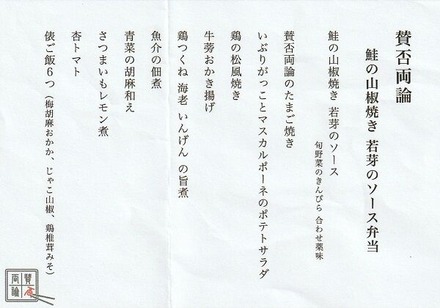 賛否両論
鮭の山椒焼き 若芽のソース弁当
鮭の山椒焼き 若芽のソース
旬野菜のきんぴら 合わせ薬味
賛否両論のたまご焼き
いぶりがっことマスカルポーネのポテトサラダ
鶏の松風焼き
牛蒡おかき揚げ
鶏つくね 海老 いんげん の旨煮
魚介の佃煮
青菜の胡麻和え
さつまいもレモン煮
杏トマト
俵ご飯6つ（梅胡麻おかか、じゃこ山椒、鶏椎茸みそ）
賛否両論